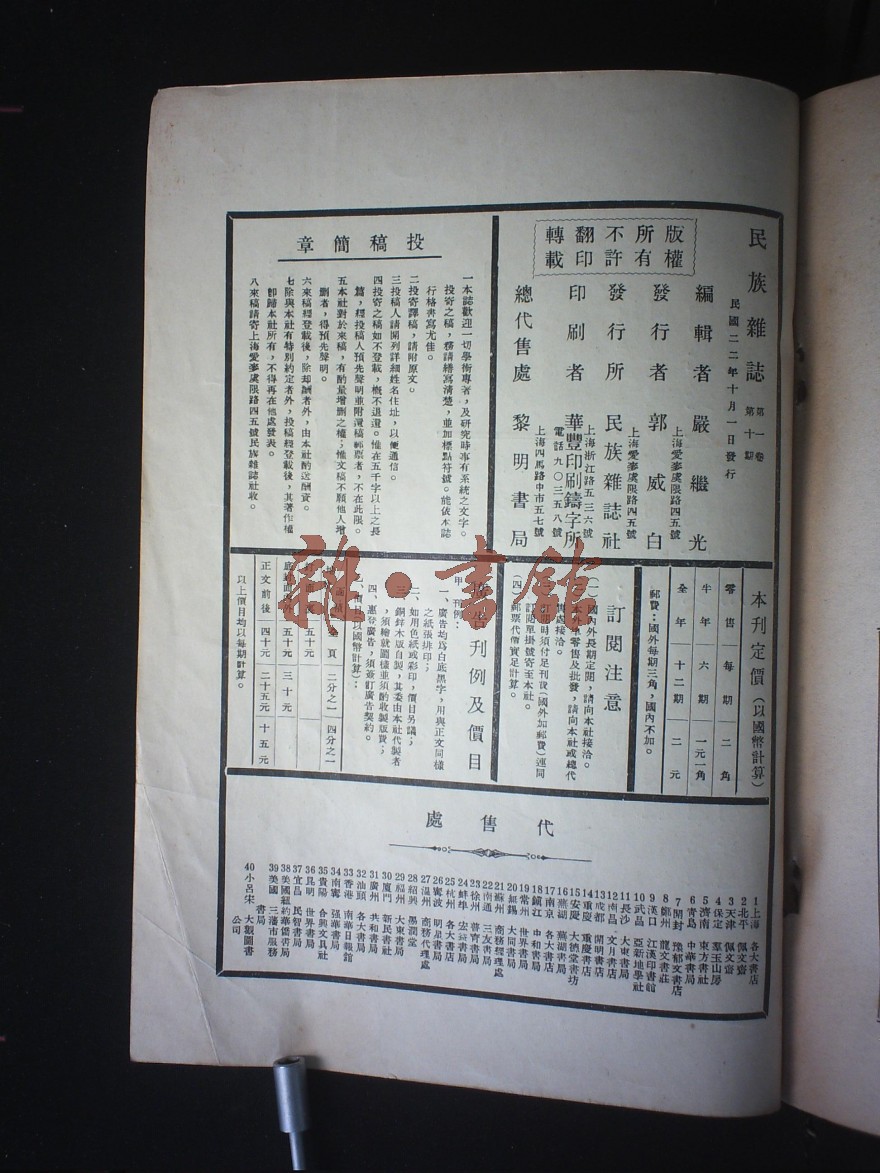 民族雜誌 第一卷 第十期
民國二二年十月一日發行
編輯者 嚴繼光
上海愛麥虞限路四五號
發行者 郭威白
上海愛麥虞限路四五號
發行所 民族雜誌社
上海浙江路五三六號
印刷者 華豐印刷鑄字所
電話九〇三五八號
上海四馬路中市五七號
總代售處 黎明書局
版權
所有
不許
翻印
轉載
投稿簡章
一本誌歡迎一切學術專著,及研究時事有系統之文字。
投寄之稿,務請繕寫清楚,並加標點符號。能依本誌
行格書寫尤佳。
二投寄譯稿,請附原文。
三投稿人請開列詳細姓名住址,以便通信。
四投寄之稿如不登載,概不退還。惟在五千字以上之長
篇,經投稿人預先聲明並附還稿郵票者,不在此限。
五本社對於來稿,有酌量增删之權;惟文稿不願他人增
删者,得預先聲明。
六來稿經登載後,除却酬者外,由本社酌送酬資。
七除與本社有特別約定者外,投稿經登載後,其著作權
即歸本社所有,不得再在他處發表。
八來稿請寄上海愛麥虞限路四五號民族雜誌社收。
本刊定價(以國幣計算)
零售 每期 二角
半年 六期 一元一角
全年 十二期 二元
郵費:國外每期三角,國內不加。
訂閱注意
(一)國內外長期定閱,請向本社接洽。
本外埠零售及批發,請向本社或總代
售處接洽。
訂閱時須付足刊費(國外加郵費)連同
訂閱單掛號寄至本社。
(四)郵票代價實足計算。
刊例及價目
甲、刊例:
一、廣告均爲白底黑字,用與正文同樣
之紙張排印;
二、如用色紙或彩印,價目另議;
三、銅鋅木版自製,其委由本社代製者
,須繪就圖樣並須酌收製版費;
四、惠登廣告,須簽訂廣告契約。
價目(以國幣計算):
全頁 二分之一 四分之一
五十元
底封面外 五十元 三十元
正文前後 四十元 二十五元 十五元
以上價目均以每期計算。
代售處
1 上海 各大書店
2 北平 佩文齋
3 天津 佩文齋
4 保定 羣玉山房
5 濟南 東方書社
6 青島 中華書局
7 開封 豫郁文書店
8 鄭州 龍文書莊
9 漢口 江漢印書館
10 武昌 亞新地學社
11 長沙 大東書局
12 南昌 文月書店
13 成都 開明書店
14 重慶 重慶書店
15 安慶 大德堂書坊
16 蕪湖 蕪湖書局
17 南京 各大書店
18 鎮江 中和書局
19 常州 世界書局
20 無錫 大同書局
21 蘇州 商務經理處
22 南通 三友書局
23 徐州 普育書局
24 蚌埠 宏文書局
25 杭州 各大書店
26 寧波 明星書局
27 温州 商務代理處
28 紹興 墨潤堂
29 福州 大東書局
30 廈門 新民書社
31 廣州 共和書局
32 汕頭 各大書局
33 香港 南華日報館
34 南寧 强華書局
35 貴陽 合興文具社
36 昆明 世界書局
37 宜昌 民智書局
38 美國紐約華僑書局
39 美國 三藩市服務
書局
40 小呂宋 大觀圖書
公司
雜·書館